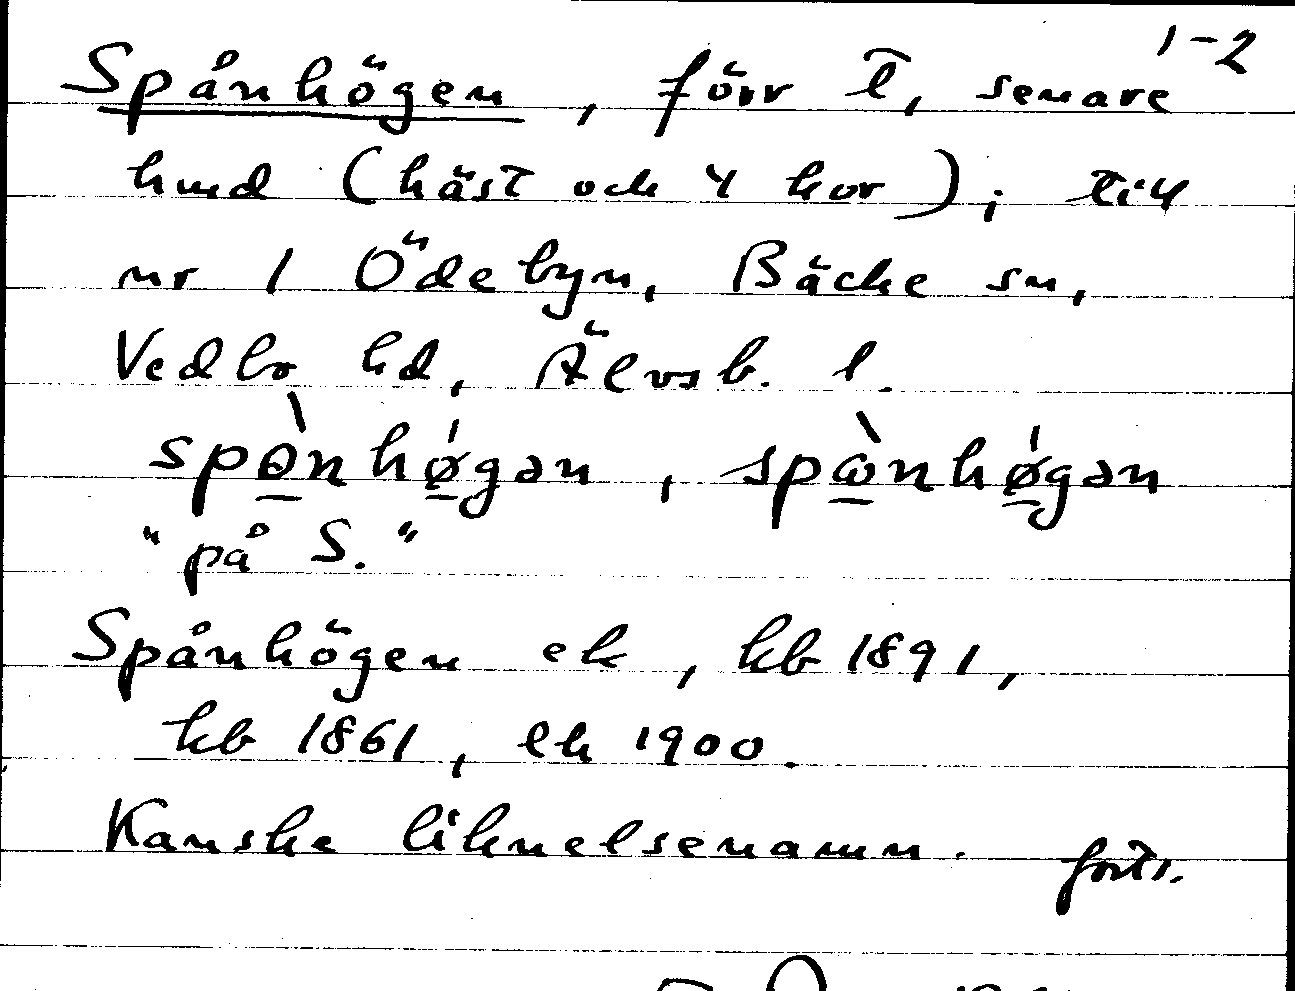 1-2
Spånhögen, förr t, senare
hmd (häst och 4 kor); till
nr 1 Ödebyn, Bäcke sn,
Vedbo hd, Älvsb. l.
spø̀nhǿgən, spὼnhǿgən
"på S."
Spånhögen ek, kb 1891,
kb 1861, ek 1900.
Kanske liknelsenamn. forts.